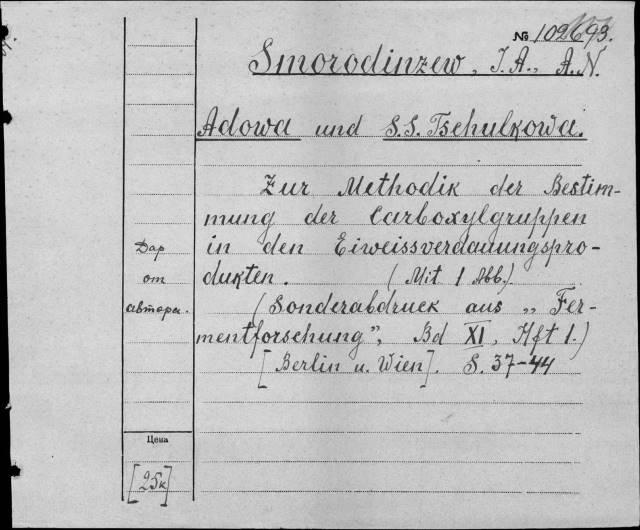 № 102693.
Smorodinzew, I.A., A.N.
Adowa und S.S. Tschulkowa.
Zur Methodik der Bestim-
mung der Carboxylgruppen
in den Eiweissverdauungspro-
dukten. (Mit 1 Abb.)
(Sonderabdruck aus „Fer-
mentforschung", Bd XI, Hft 1.)
[Berlin u. Wien]. S. 37-44
Дар
от
автора.
Цена
[25к]